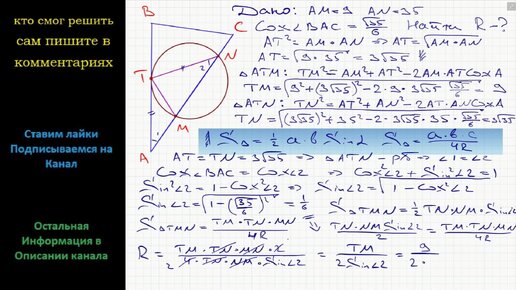 кто смог решить
сам пишите в
комментариях
Ставим лайки
Подписываемся на
Канал
Остальная
Информация в
Описании канала
B
C
N
T
2
M
1
A
Дано: AM=9 AN=35
Cos∠BAC = √35/6 Найти R-?
AT² = AM·AN ⇒ AT = √AM·AN
AT = √9·35 = 3√35
△ATM: TM² = AM² + AT² - 2AM·AT CosA
TM = √9² + (3√35)² - 2·9·3√35·√35/6 = 9
△ATN: TN² = AT² + AN² - 2AT·AN CosA
TN = √(3√35)² + 35² - 2·3√35·35·√35/6 = 3√35
S△ = 1/2 a·b Sin∠ S△ = a·b·c/4R
AT = TN = 3√35 ⇒ △ATN - р/б ⇒ ∠1=∠2
Cos∠BAC = Cos∠2 ⇒ Cos²∠2 + Sin²∠2 = 1
Sin²∠2 = 1 - Cos²∠2 ⇒ Sin∠2 = √1 - Cos²∠2
Sin∠2 = √1 - (√35/6)² = 1/6 S△TMN = 1/2 TN·NM·Sin∠2
S△TMN = TM·TN·MN/4R ⇒ TN·NM Sin∠2/2 = TM·TN·MN/4R
R = TM·TN·MN·2/4·TN·NM·Sin∠2 = TM/2Sin∠2 = 9/2·